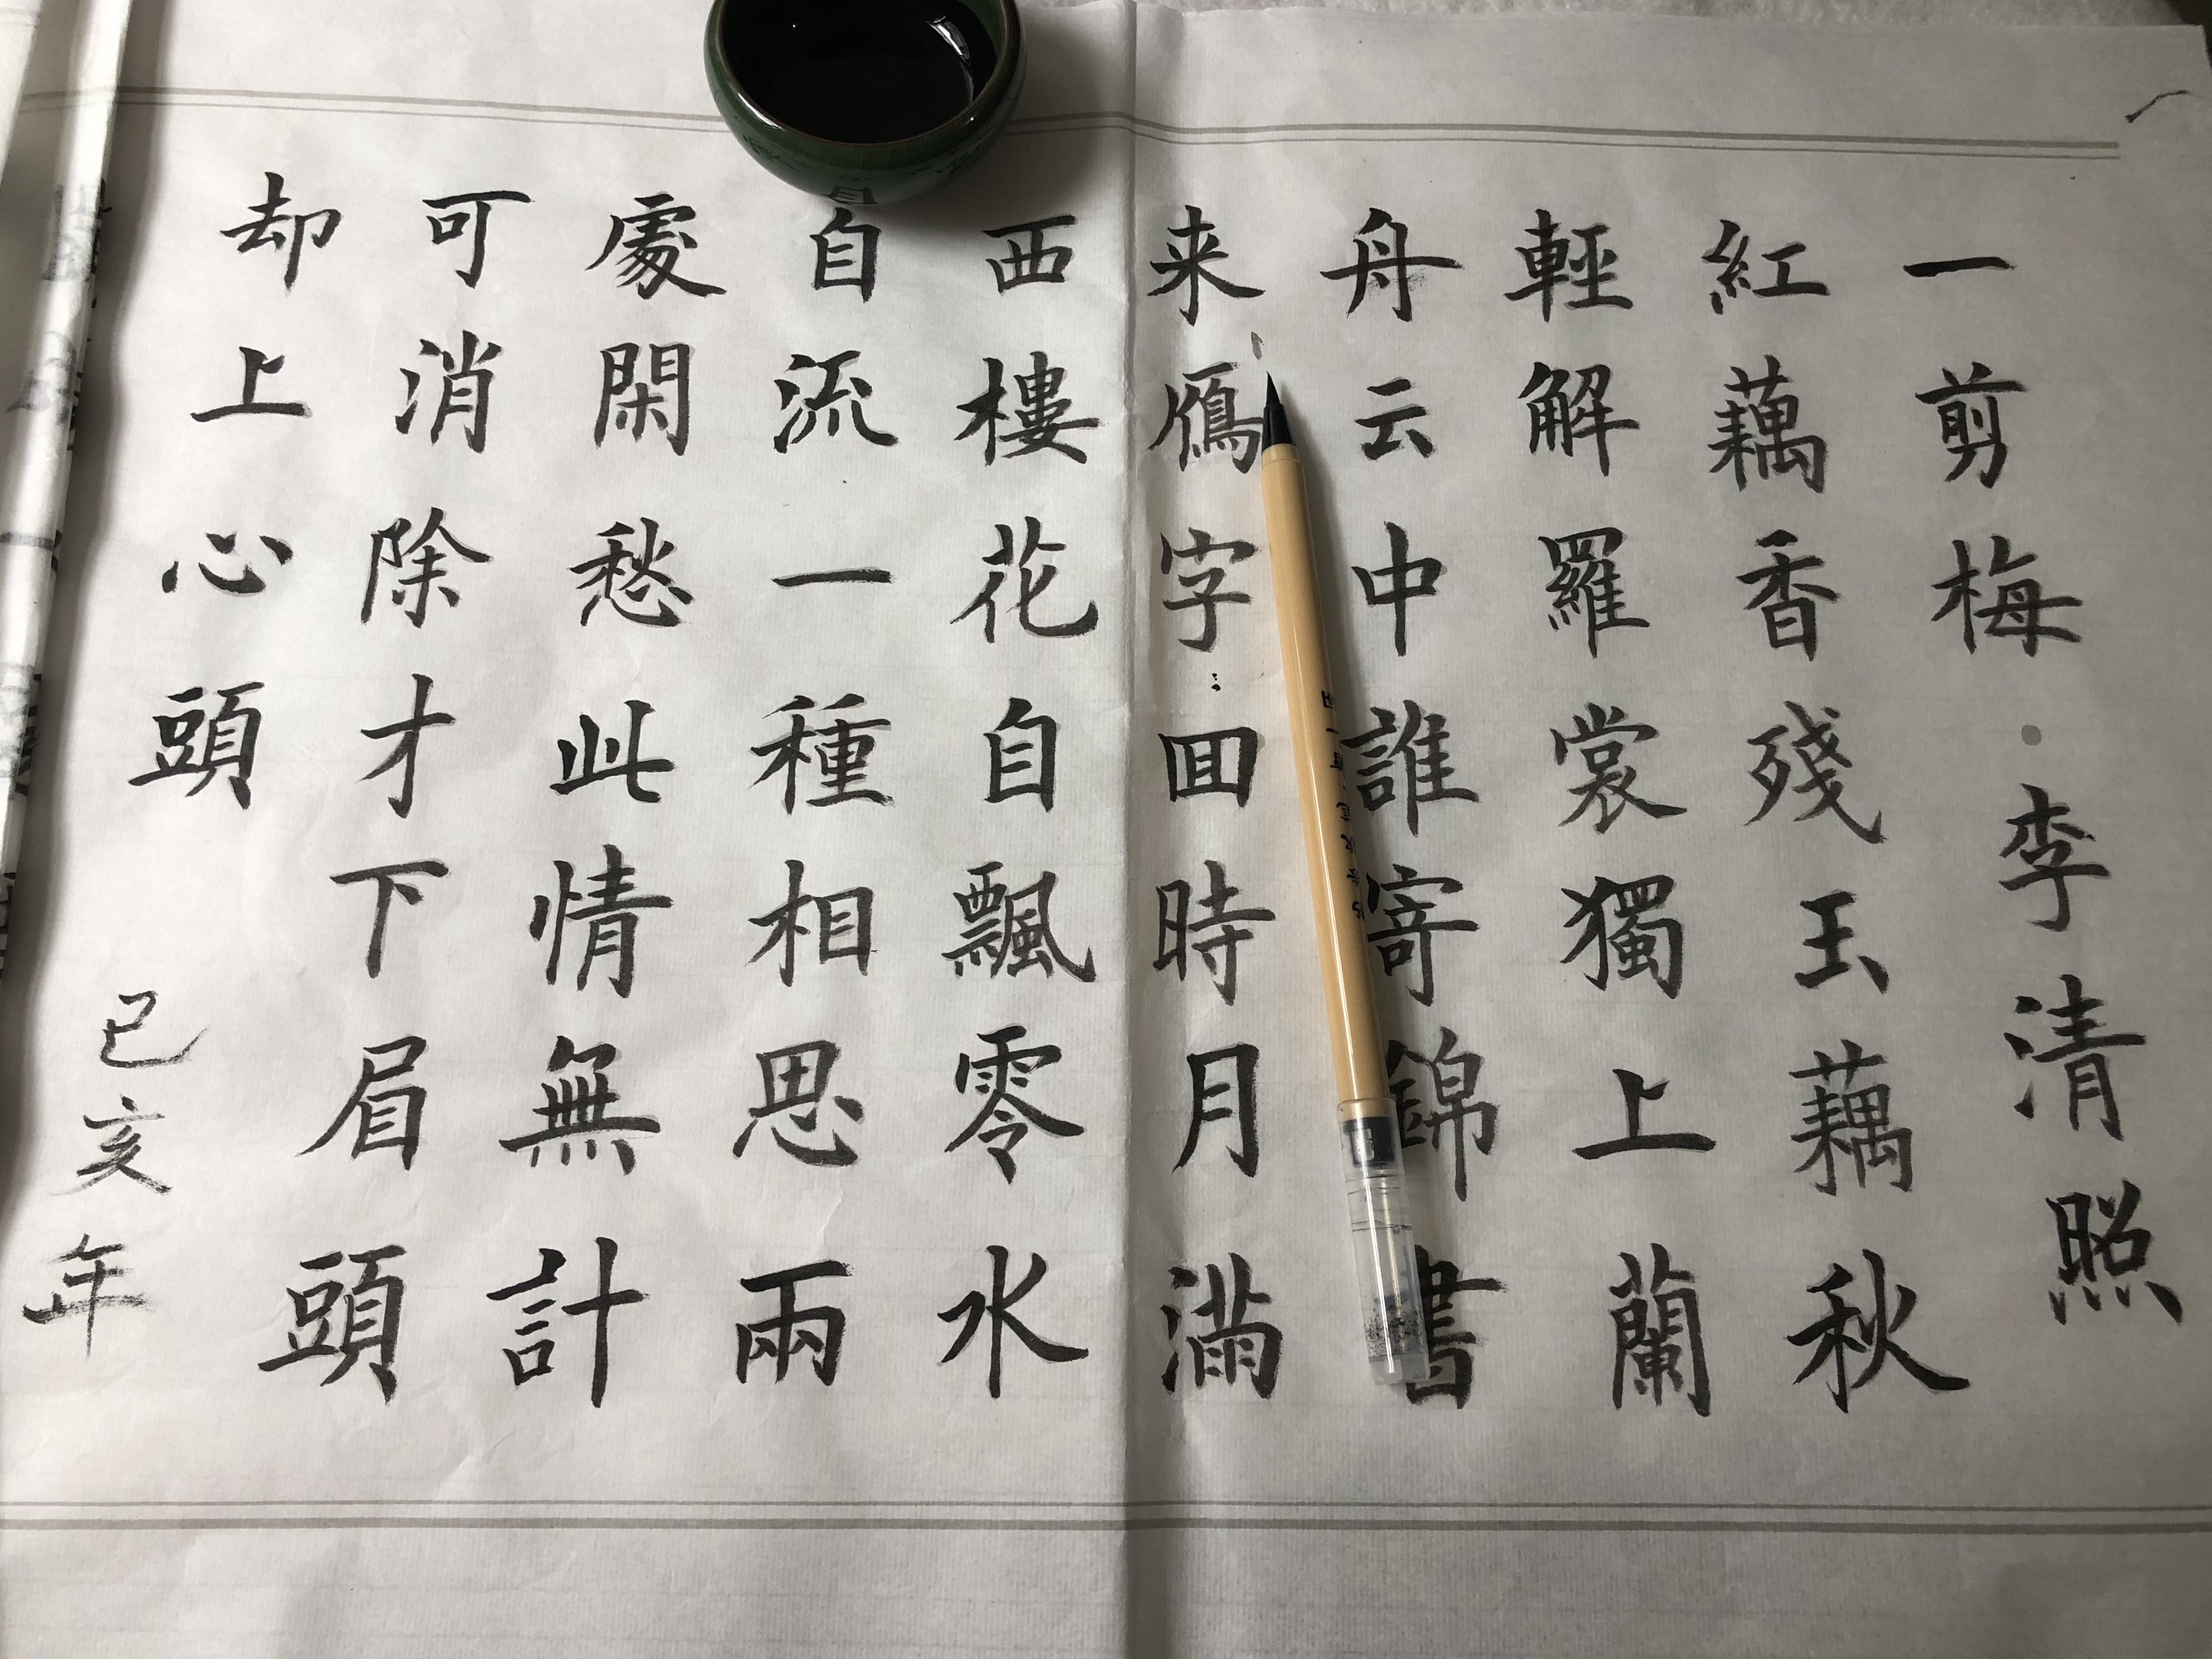 一剪梅·李清照
紅藕香殘玉藕秋
輕解羅裳獨上蘭
舟云中誰寄錦書
来鴈字囬時月滿
西樓花自飄零水
自流一種相思兩
處閑愁此情無計
可消除才下眉頭
却上心頭
己亥年